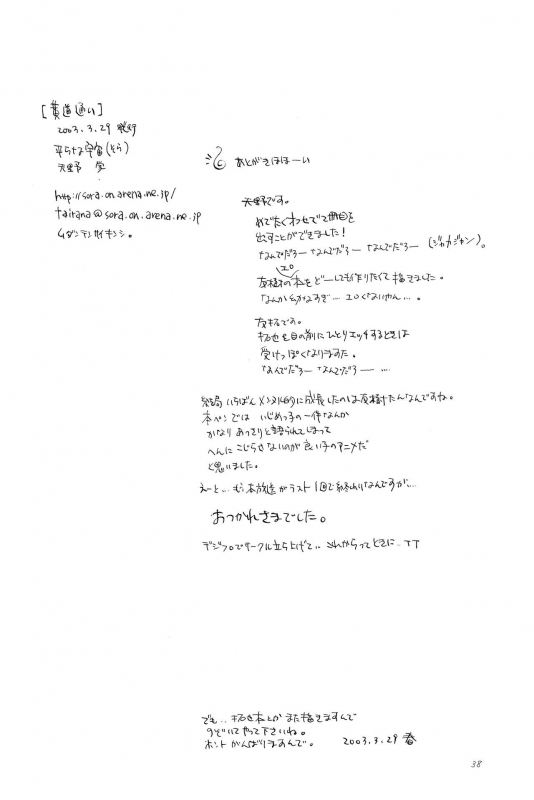 [黄道通い]
2003.3.29 発行
平らな宇宙(そら)
天野
http://sora.on.arena.ne.jp/
tairana@sora.on.arena.ne.jp
ムダンテンサイキンシ。
あとがきほほーい
天野です。
めでたくわせで2冊目を
出すことができました!
なんでだろー なんでだろー なんでだろー (ジャカジャン)。
友樹の エロ 本をどーしても作りたくて描きました。
なんか幼なすぎー エロくないやん…。
友樹です。
拓也を目の前にひとりエッチするときは
受けっぽくなりますた。
なんでだろー なんでだろー ….
結局 いちばん メンタル的に成長したのは友樹たんなんですね。
本ペンでは いじめっ子の一件なんか
かなり あっさりと語られてしまって
へんに こじらせないのが良い子のアニメだ
と思いました。
えーと… もう本放送がラスト1回で終わりなんですが….
おつかれさまでした。
デジフロでサークル立ち上げて.. これからってときに.. TT
でも.. 拓也本とか また描きますんで
のぞいてやって下さいね。
ホント がんばりますんで。 2003.3.29 春
38